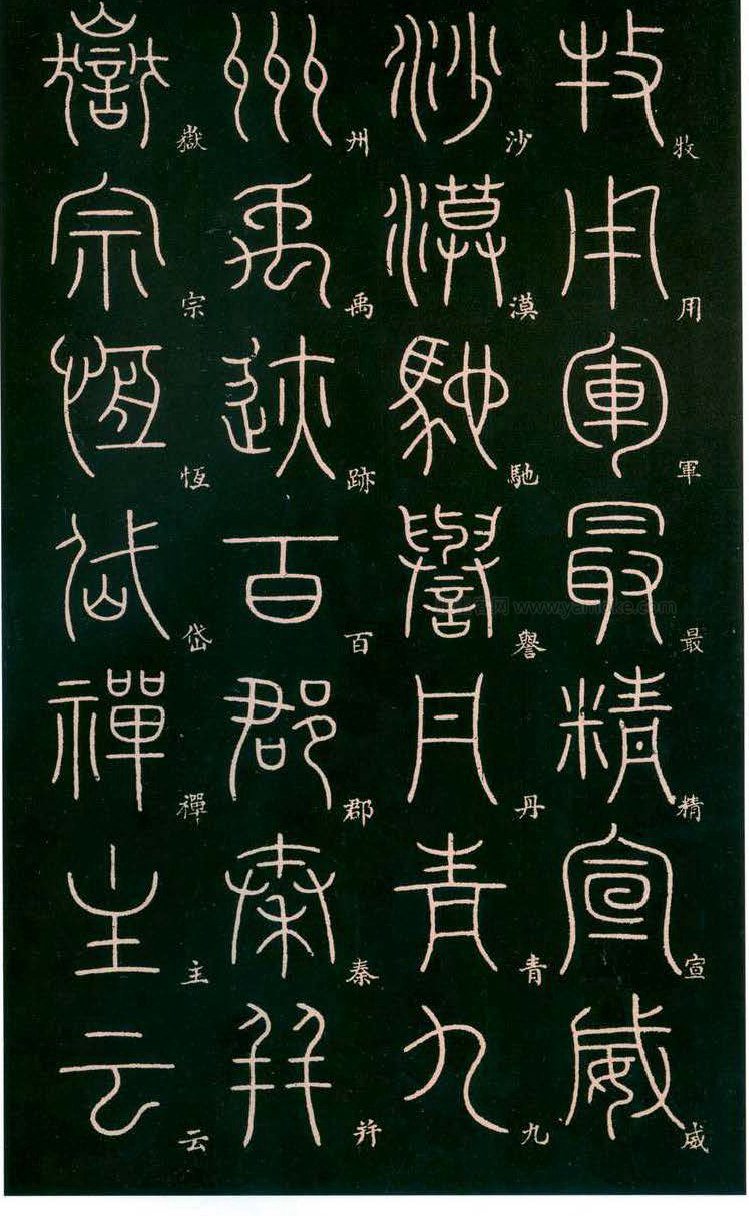 牧用軍最精宣威
沙漠馳譽丹青九
州禹跡百郡秦并
嶽宗恆岱禪主云
www.yamoke.com